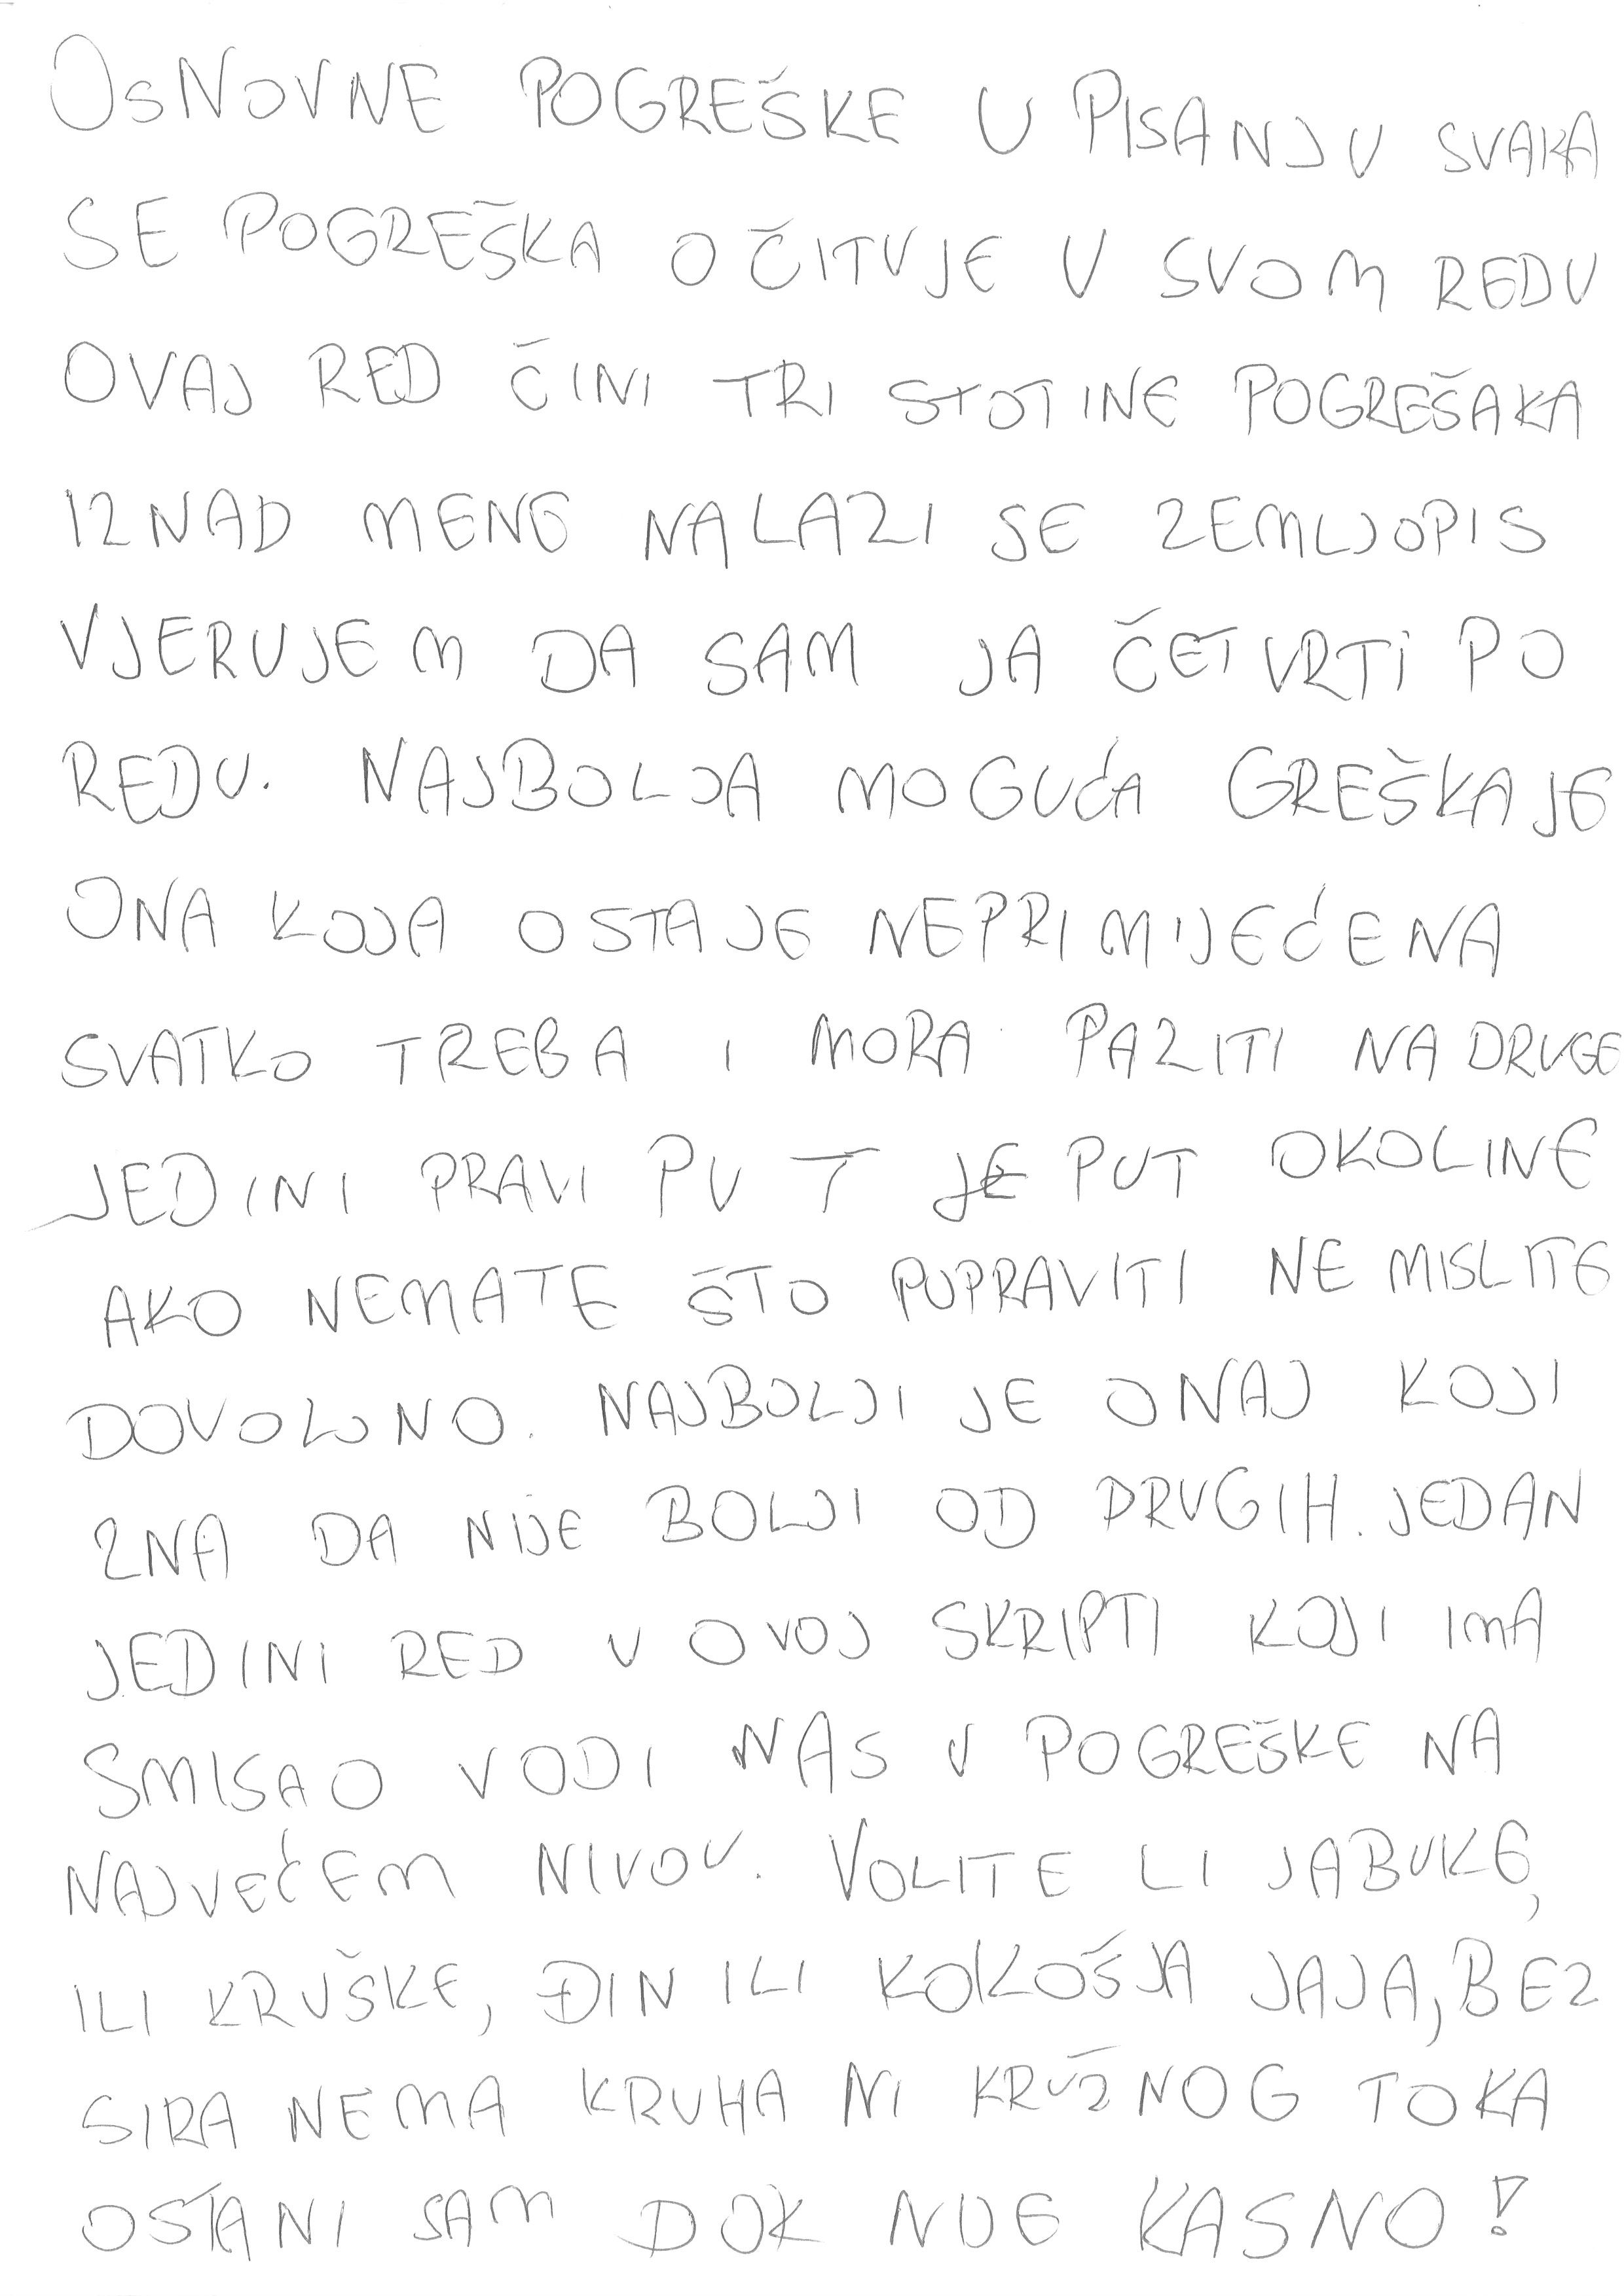 OSNOVNE POGREŠKE U PISANJU SVAKA
SE POGREŠKA OČITUJE U SVOM REDU
OVAJ RED ČINI TRI STOTINE POGREŠAKA
IZNAD MENE NALAZI SE ZEMLJOPIS
VJERUJEM DA SAM JA ČETVRTI PO
REDU. NAJBOLJA MOGUĆA GREŠKA JE
ONA KOJA OSTAJE NEPRIMIJEĆENA
SVATKO TREBA I MORA PAZITI NA DRUGE
JEDINI PRAVI PUT JE PUT OKOLINE
AKO NEMATE ŠTO POPRAVITI NE MISLITE
DOVOLJNO. NAJBOLJI JE ONAJ KOJI
ZNA DA NIJE BOLJI OD DRUGIH. JEDAN
JEDINI RED U OVOJ SKRIPTI KOJI IMA
SMISAO VODI NAS U POGREŠKE NA
NAJVEĆEM NIVOU. VOLITE LI JABUKE,
ILI KRUŠKE, ĐIN ILI KOKOŠJA JAJA, BEZ
SIRA NEMA KRUHA NI KRUŽNOG TOKA
OSTANI SAM DOK NIJE KASNO!